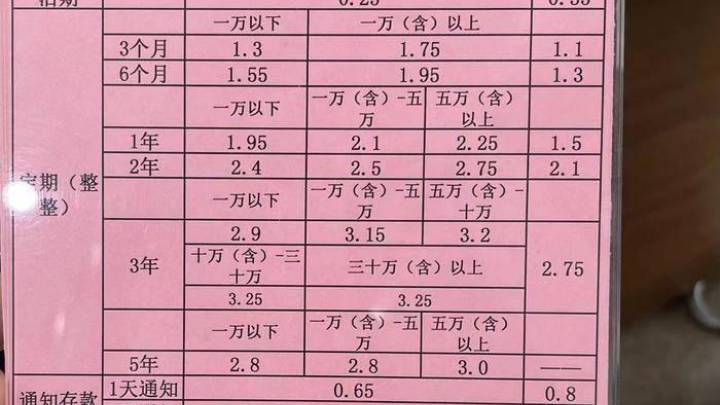 一万以下 一万（含）以上
3个月 1.3 1.75 1.1
6个月 1.55 1.95 1.3
一万以下 一万（含）-五万 五万（含）以上
1年 1.95 2.1 2.25 1.5
2年 2.4 2.5 2.75 2.1
定期（整整）
一万以下 一万（含）-五万 五万（含）-十万
2.9 3.15 3.2
3年 十万（含）-三十万 三十万（含）以上 2.75
3.25 3.25
一万以下 一万（含）-五万 五万（含）以上
5年 2.8 2.8 3.0 ——
通知存款 1天通知 0.65 0.8